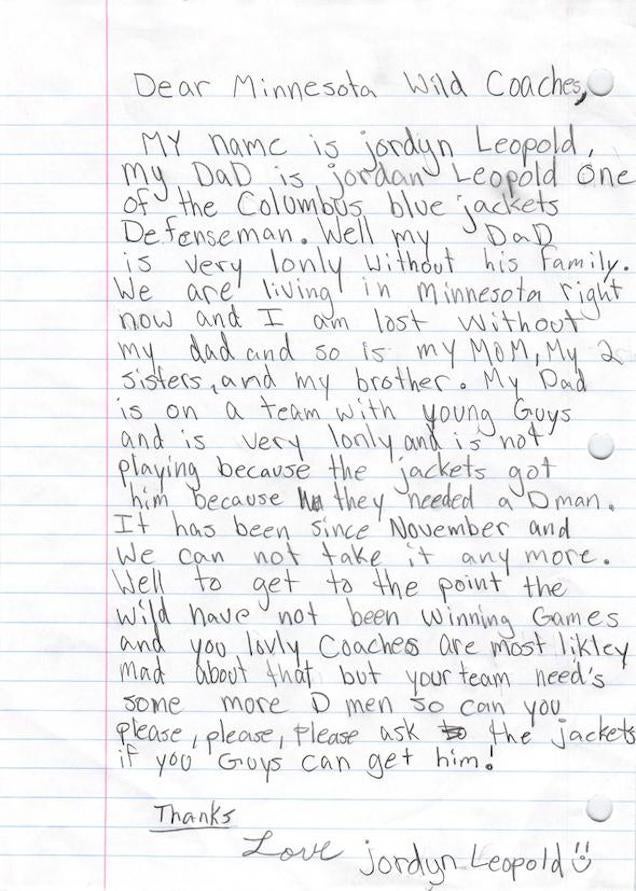 Dear Minnesota Wild Coaches,
MY name is jordyn Leopold,
my DaD is jordan Leopold One
of the Columbus blue jackets
Defenseman. Well my DaD
is very lonly without his family.
We are living in minnesota right
now and I am lost without
my dad and so is my MOM, My 2
sisters, and my brother. My Dad
is on a team with young Guys
and is very lonly and is not
playing because the jackets got
him because they needed a Dman.
It has been since November and
We can not take it any more.
Well to get to the point the
wild have not been winning Games
and you lovly Coaches are most likley
mad about that but your team need's
some more D men so can you
please, please, Please ask the jackets
if you Guys can get him!
Thanks
Love jordyn Leopold